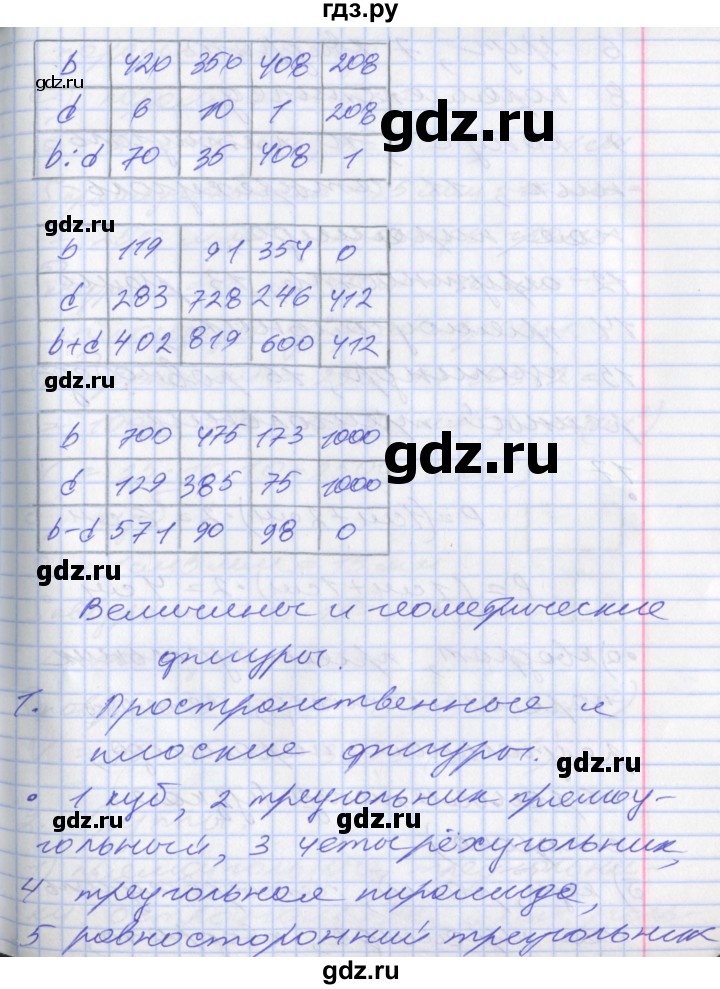 гдз.ру
b 420 350 408 208
d 6 10 1 208
b:d 70 35 408 1
gdz.ru
gdz.ru
gdz.ru
b 119 91 354 0
d 283 728 246 412
b+d 402 819 600 412
gdz.ru
b 700 475 173 1000
d 129 385 75 1000
b-d 571 90 98 0
gdz.ru
gdz.ru
Величины и геометрические
фигуры.
1. Пространственные и
плоские фигуры.
gdz.ru
• 1 куб, 2 треугольник прямоу-
gdz.ru
gdz.ru
гольный, 3 четырёхугольник,
4 треугольная пирамида,
5 равносторонний треугольник
gdz.ru